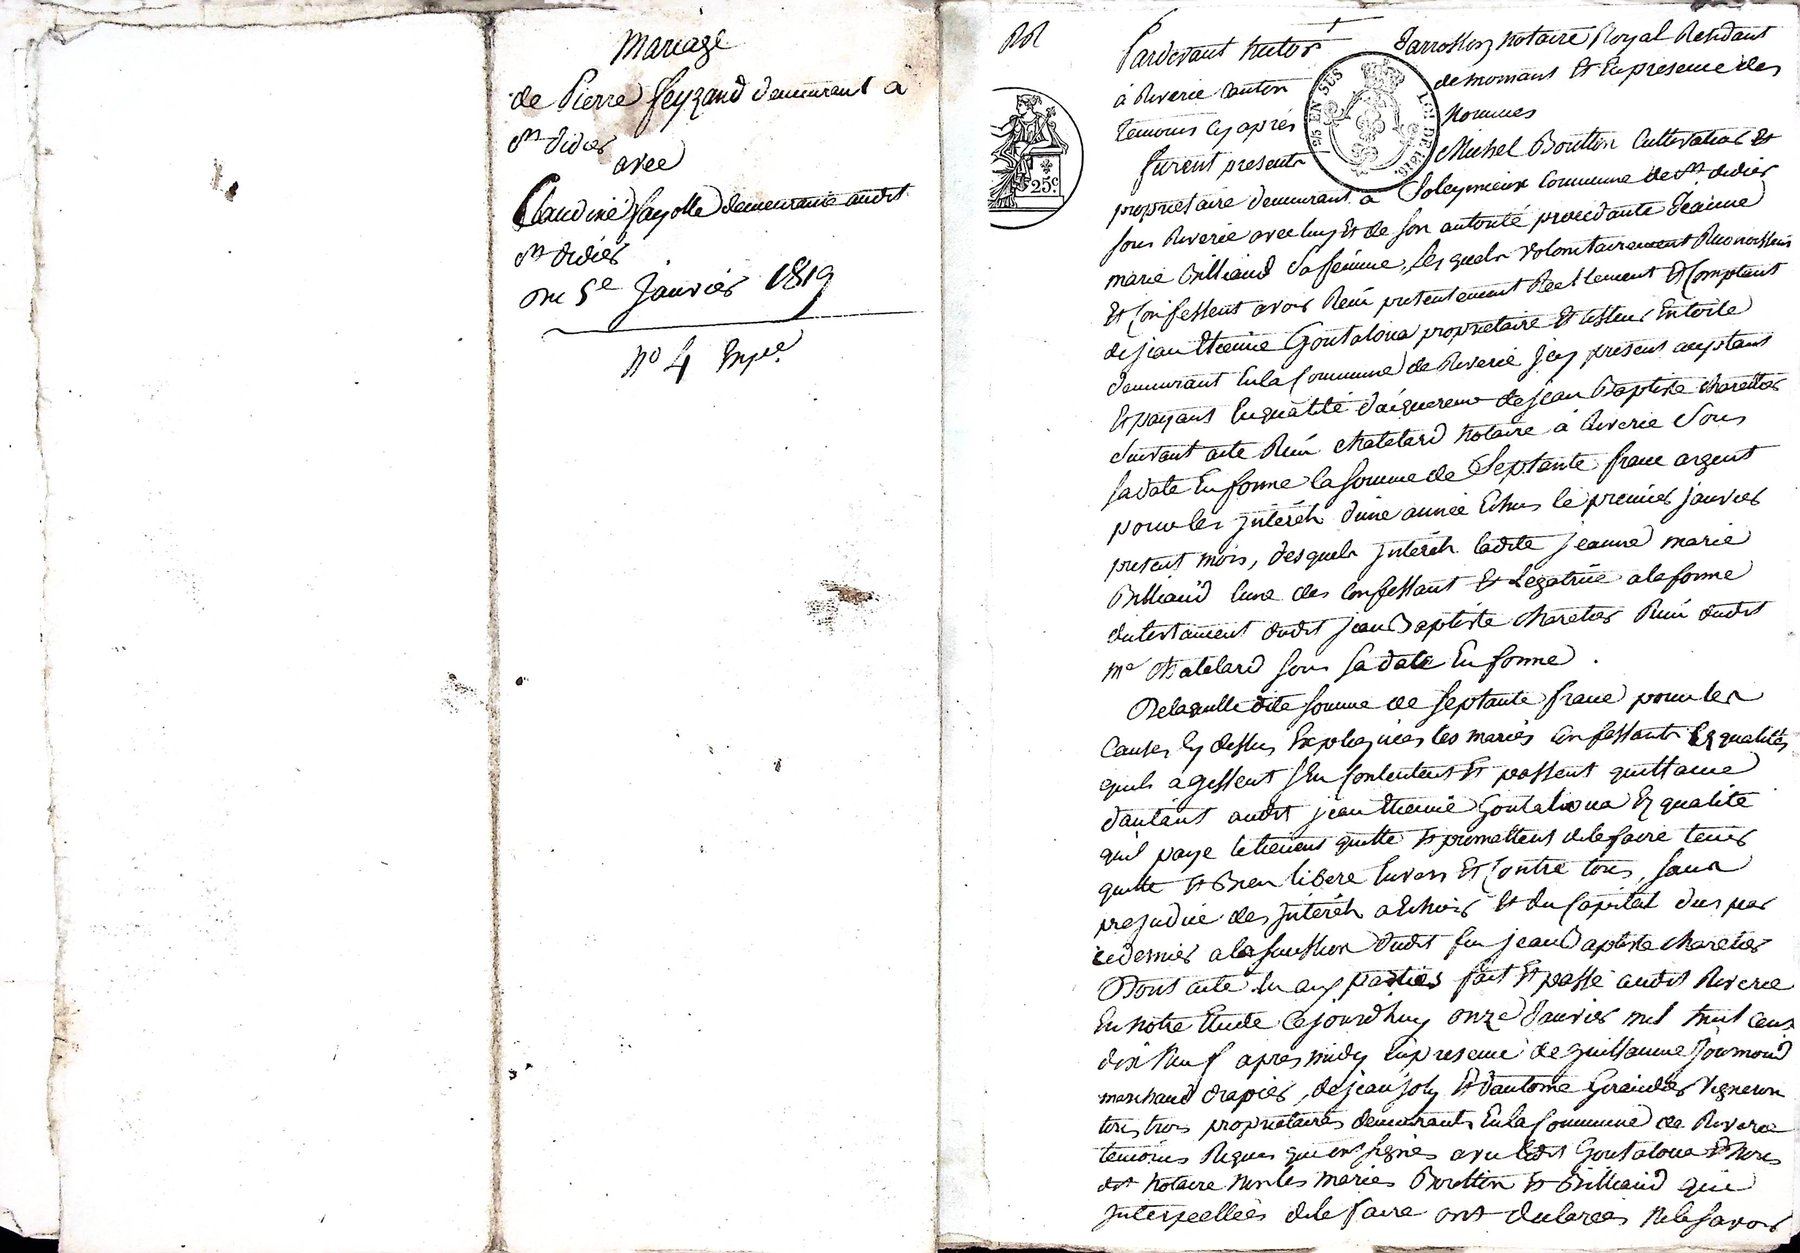 Mariage
de Pierre feyzand demeurant a
St didier
avec
Claudine fayolle demeurante audit
St didiér
du 5e Janvier 1819
No 4 Expée.
Pardevant victor Jarrosson notaire Royal Residant
à Riverie canton de mornant Et En presence des
temoins cy aprés nommes
25 EN SUS
DE 1816.
25c
furent presents Michel Boutton Cultivateur Et
propriétaire demeurant à Soleymieux Commune de St didier
sous Riverie avec luy Et de son autorité procedante Jeanne
marie Billiaud sa femme, Lesquels volontairement Reconoissent
Et Confessent avoir Reçu presentement Reellement Et Comptant
de jean Etienne Goutaloua proprietaire Et tisseur En toile
demeurant En la Commune de Riverie jcy present acceptant
Et payant En qualité d'aquereur de jean Baptiste charetier
suivant acte Reçu chatelard notaire à Riverie Sous
sa date En forme la somme de Septante franc argent
pour les jnteréts d'une année Echus le premier janvier
present mois, desquels jnteréts ladite jeanne marie
Billiaud l'une des Confessant Et Legatrice a la forme
du testament dudit jean Baptiste charetier Reçu dudit
me Chatelard sous sa date En forme.
De laquelle dite somme de septante franc pour les
Causes cy dessus Expliquées les mariés Confessants Es qualités
quils agissent s'En Contentent Et passent quittance
d'autant audit jean Etienne Goutaloua Es qualité
quil paye le tienent quitte Et promettent de le faire tenir
quitte Et Bien libere Envers Et Contre tous, sans
prejudice des jnteréts a Echoir Et du Capital dus par
ce dernier a la succession dudit feu jean Baptiste charetier
Dont acte lu aux parties fait Et passé audit Riverie
En notre Etude Cejourdhuy onze Janvier mil huit cent
dix Neuf aprés midy En presence de guillaume
marchand drapier, de jean joly Et d'antoine Giraudier vigneron
tous trois proprietaires demeurants En la Commune de Riverie
temoins Requis qui ont signés avec ledit Goutaloua Et nous
dit Notaire non les mariés Boutton Et Billiaud qui
jnterpellées de le faire ont declarées Ne le savoir